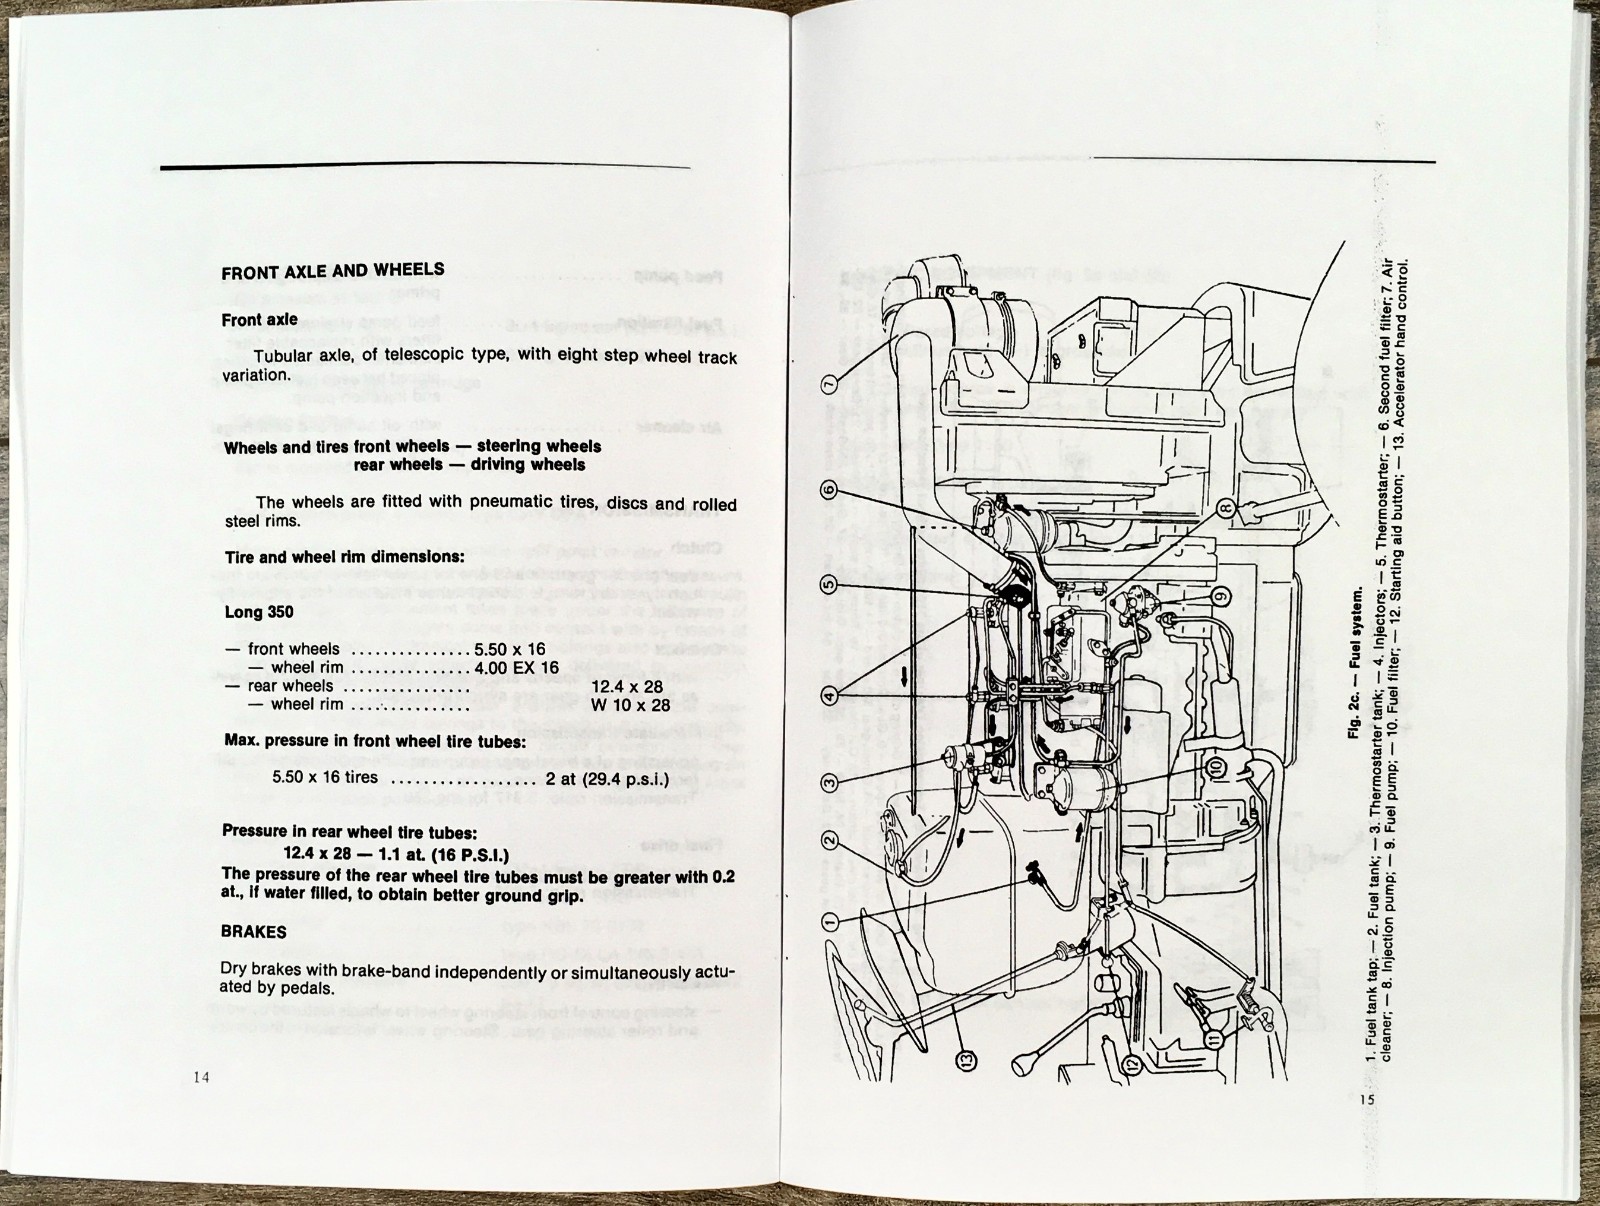 FRONT AXLE AND WHEELS
Front axle
Tubular axle, of telescopic type, with eight step wheel track
variation.
Wheels and tires front wheels — steering wheels
rear wheels — driving wheels
The wheels are fitted with pneumatic tires, discs and rolled
steel rims.
Tire and wheel rim dimensions:
Long 350
— front wheels ............... 5.50 x 16
— wheel rim ............... 4.00 EX 16
— rear wheels ................ 12.4 x 28
— wheel rim ............... W 10 x 28
Max. pressure in front wheel tire tubes:
5.50 x 16 tires .................. 2 at (29.4 p.s.i.)
Pressure in rear wheel tire tubes:
12.4 x 28 — 1.1 at. (16 P.S.I.)
The pressure of the rear wheel tire tubes must be greater with 0.2
at., if water filled, to obtain better ground grip.
BRAKES
Dry brakes with brake-band independently or simultaneously actu-
ated by pedals.
14
1
2
3
4
5
6
7
8
9
10
11
12
13
Fig. 2c. — Fuel system.
1. Fuel tank tap; — 2. Fuel tank; — 3. Thermostarter tank; — 4. Injectors; — 5. Thermostarter; — 6. Second fuel filter; 7. Air
cleaner; — 8. Injection pump; — 9. Fuel pump; — 10. Fuel filter; — 12. Starting aid button; — 13. Accelerator hand control.
15